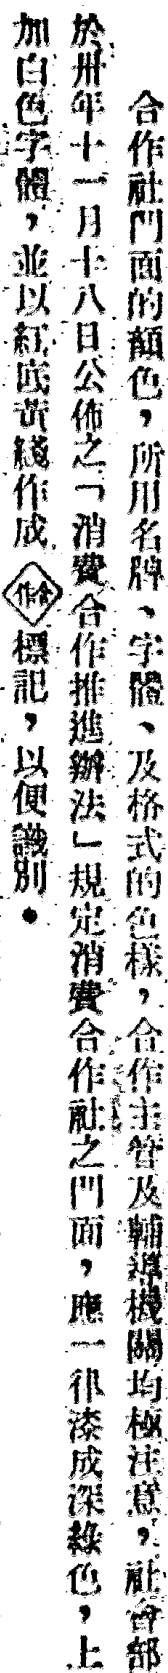 合作社門面的顏色，所用名牌、字體、及格式的色樣，合作主管及輔導機關均極注意，社會部
於卅年十一月十八日公佈之「消費合作推進辦法」規定消費合作社之門面，應一律漆成深綠色，上
加白色字體，並以紅底黃綫作成合作標記，以便識別。